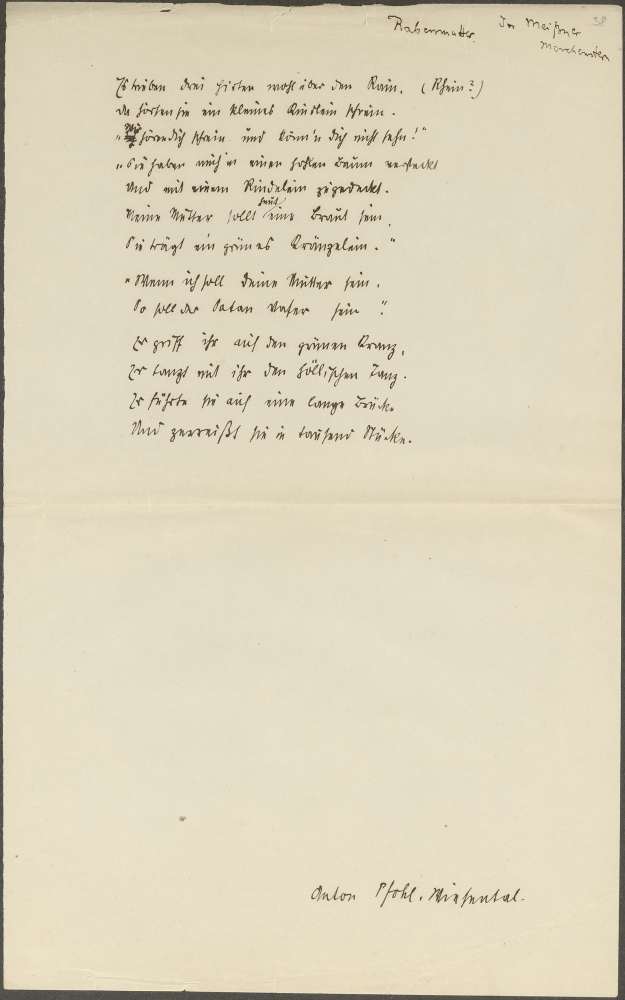 Rabenmutter.
Jos Meißner
Morchenstern
38
Es trieben drei Hirten wohl über den Rain. (Rhein?)
da hörten sie ein kleines Kindlein schrein.
„Wir hören dich schrein und könn'n dich nicht sehn!"
„Sie haben mich in einen hohlen Baum versteckt
Und mit einem Rindelein zugedeckt.
Meine Mutter sollt heut eine Braut sein,
Sie trägt ein grünes Kränzelein."
„Wenn ich soll deine Mutter sein,
So soll der Satan Vater sein".
Er griff ihr auf den grünen Kranz,
Er tanzt mit ihr den höllischen Tanz.
Er führte sie auf eine lange Brücke
Und zerreißt sie in tausend Stücke.
Anton Pfohl. Wiesental.